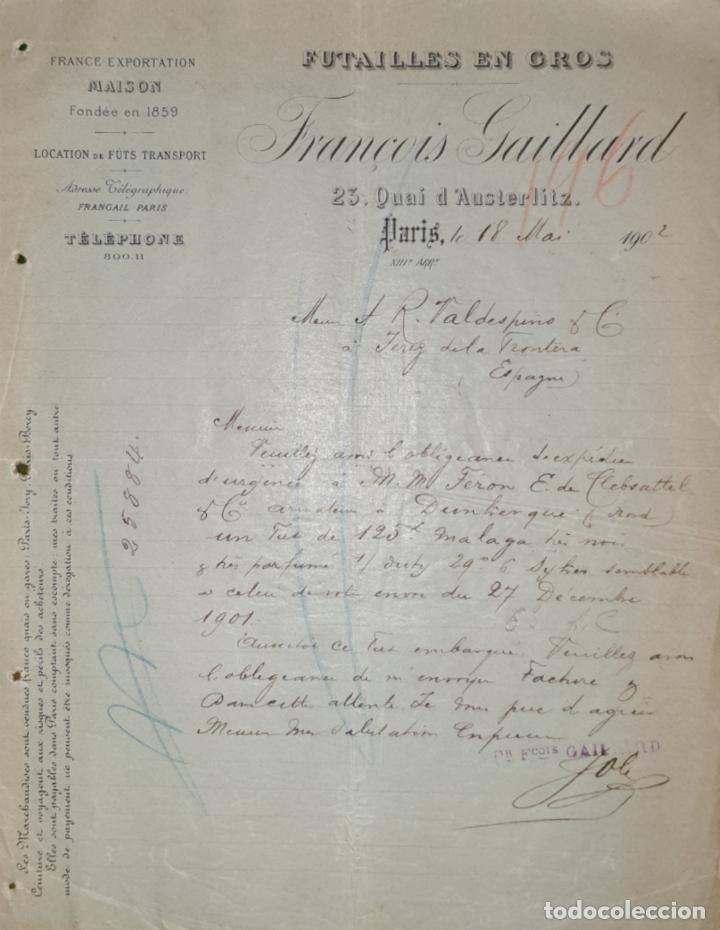 FRANCE-EXPORTATION
MAISON
Fondée en 1859
LOCATION DE FÛTS TRANSPORT
Adresse Télégraphique
FRANGAIL PARIS
TÉLÉPHONE
800.11
FUTAILLES EN GROS
François Gaillard
196
23, Quai d'Austerlitz.
Paris, le 18 Mai 1902
XIIIe ARRt
A R. Valdespino & Cie
à Jerez de la Frontera
(Espagne)
Veuillez avoir l'obligeance d'expédier
d'urgence à M.M. Féron E. de Clebsattel
& Cie armateurs à Dunkerque (Nord)
un fus de 125 lt malaga très noir
& très parfumé semblable
a celui de votre envoi du 27 Décembre
1901.
Aussitôt ce fus embarqué. Veuillez avoir
l'obligeance de m'envoyer Facture
Dans cette attente Je vous prie d'agréer
Messieurs Mes Salutations
Pon Fçois GAILLARD
25884.
Les Marchandises sont vendues franco quais ou gares: Paris-Ivry, Paris-Bercy
Ceinture et voyagent aux risques et périls des acheteurs.
Elles sont payables dans Paris comptant sans escompte, mes traites ou tout autre
mode de payement ne peuvent être invoqués comme dérogation à ces conditions
todocoleccion
todocoleccion.net